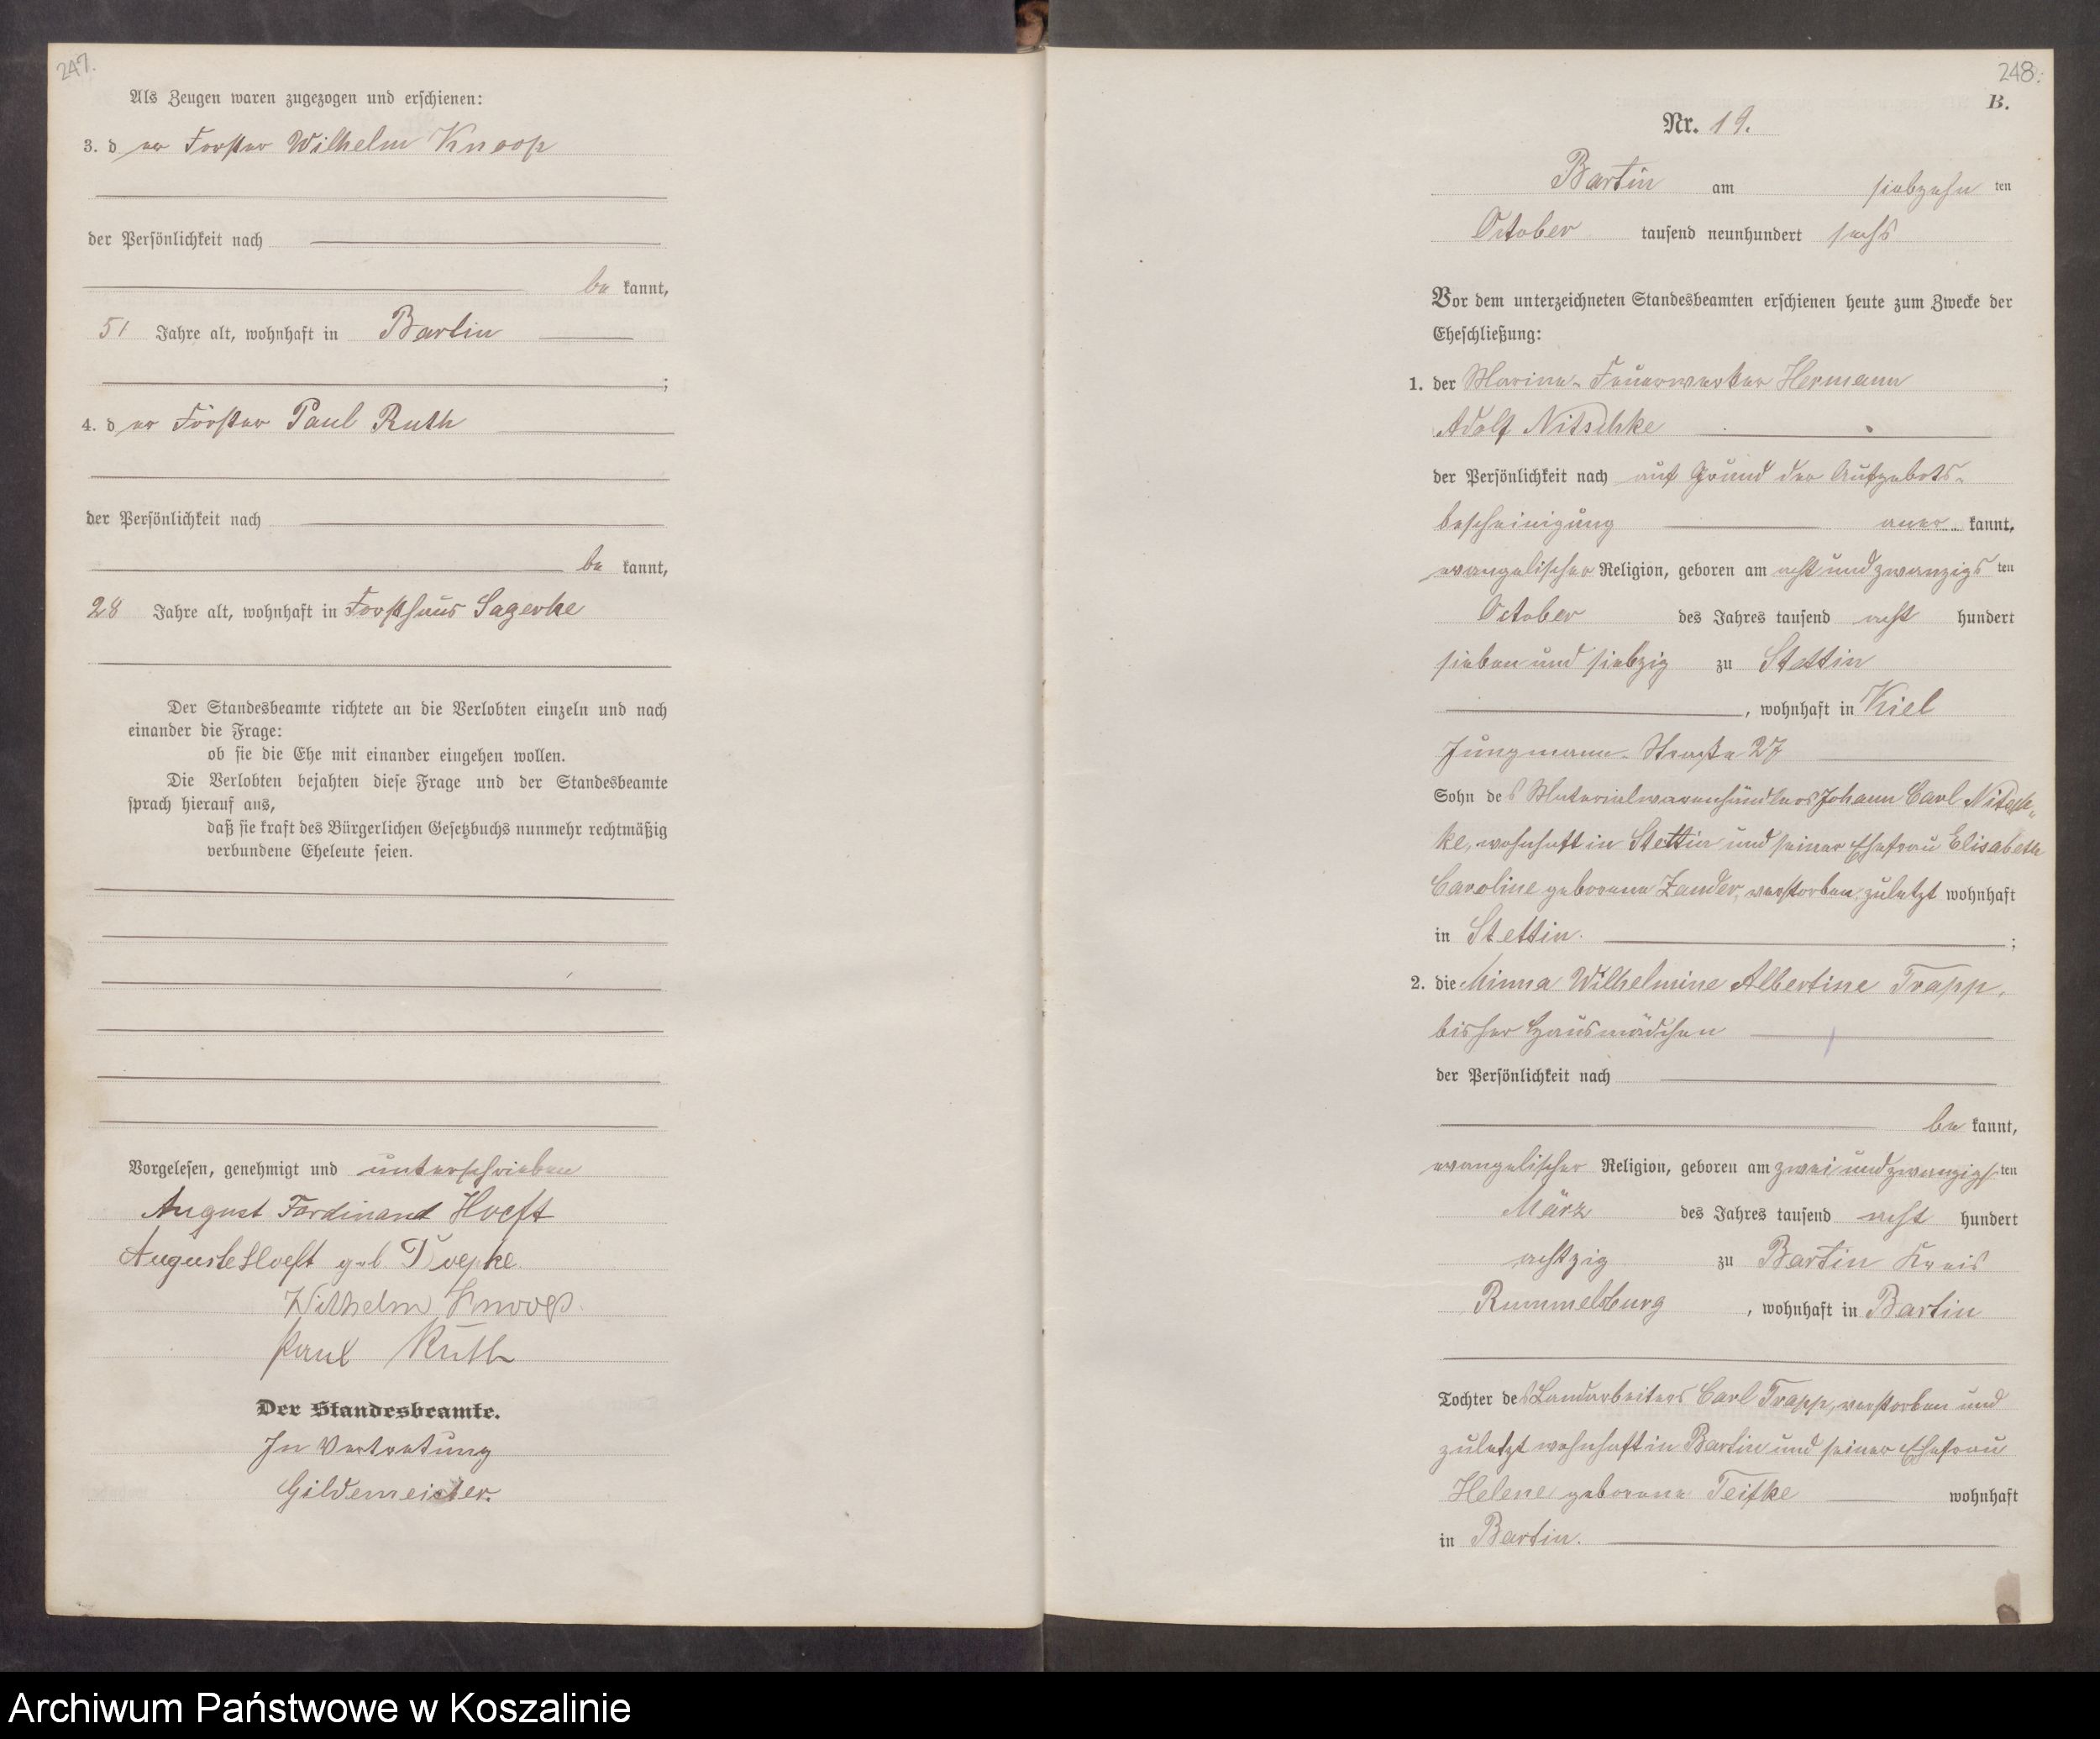 247.
Als Zeugen waren zugezogen und erschienen:
3. der Förster Wilhelm Knoop
der Persönlichkeit nach
be kannt,
51 Jahre alt, wohnhaft in Bartin
;
4. der Förster Paul Ruth
der Persönlichkeit nach
be kannt,
28 Jahre alt, wohnhaft in Forsthaus Sagerke
Der Standesbeamte richtete an die Verlobten einzeln und nach
einander die Frage:
ob sie die Ehe mit einander eingehen wollen.
Die Verlobten bejahten diese Frage und der Standesbeamte
sprach hierauf aus,
daß sie kraft des Bürgerlichen Gesetzbuchs nunmehr rechtmäßig
verbundene Eheleute seien.
Vorgelesen, genehmigt und unterschrieben
August Ferdinand Hoeft
Auguste Hoeft geb.
Wilhelm Knoop.
Paul Ruth
Der Standesbeamte.
In Vertretung
Gildemeister.
248.
B.
Nr. 19.
Bartin am siebzehn ten
October tausend neunhundert sechs
Vor dem unterzeichneten Standesbeamten erschienen heute zum Zwecke der
Eheschließung:
1. der Marine-Feuerwerker Hermann
Adolf Nitschke
der Persönlichkeit nach auf Grund der Aufgebots-
bescheinigung aner kannt,
evangelischer Religion, geboren am achtundzwanzigs ten
October des Jahres tausend acht hundert
sieben und siebzig zu Stettin
, wohnhaft in Kiel
Jungmann-Straße 27
Sohn des Materialwarenhändlers Johann Carl Nitsch-
ke, wohnhaft in Stettin und seiner Ehefrau Elisabeth
Caroline geborene Zander, verstorben, zuletzt wohnhaft
in Stettin. ;
2. die Minna Wilhelmine Albertine Trapp,
bisher Hausmädchen
der Persönlichkeit nach
be kannt,
evangelischer Religion, geboren am zwei und zwanzigs ten
März des Jahres tausend acht hundert
achtzig zu Bartin Kreis
Rummelsburg , wohnhaft in Bartin
Tochter des Landarbeiters Carl Trapp, verstorben und
zuletzt wohnhaft in Bartin und seiner Ehefrau
Helene geborene Teifke wohnhaft
in Bartin.
Archiwum Państwowe w Koszalinie